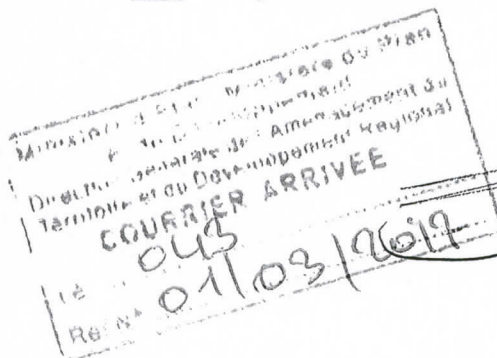 Ministère d'Etat, Ministère du Plan
et du Développement
Direction Générale de l'Aménagement du
Territoire et du Développement Régional
COURRIER ARRIVEE
Le 01/03/2012
Ref N° 043